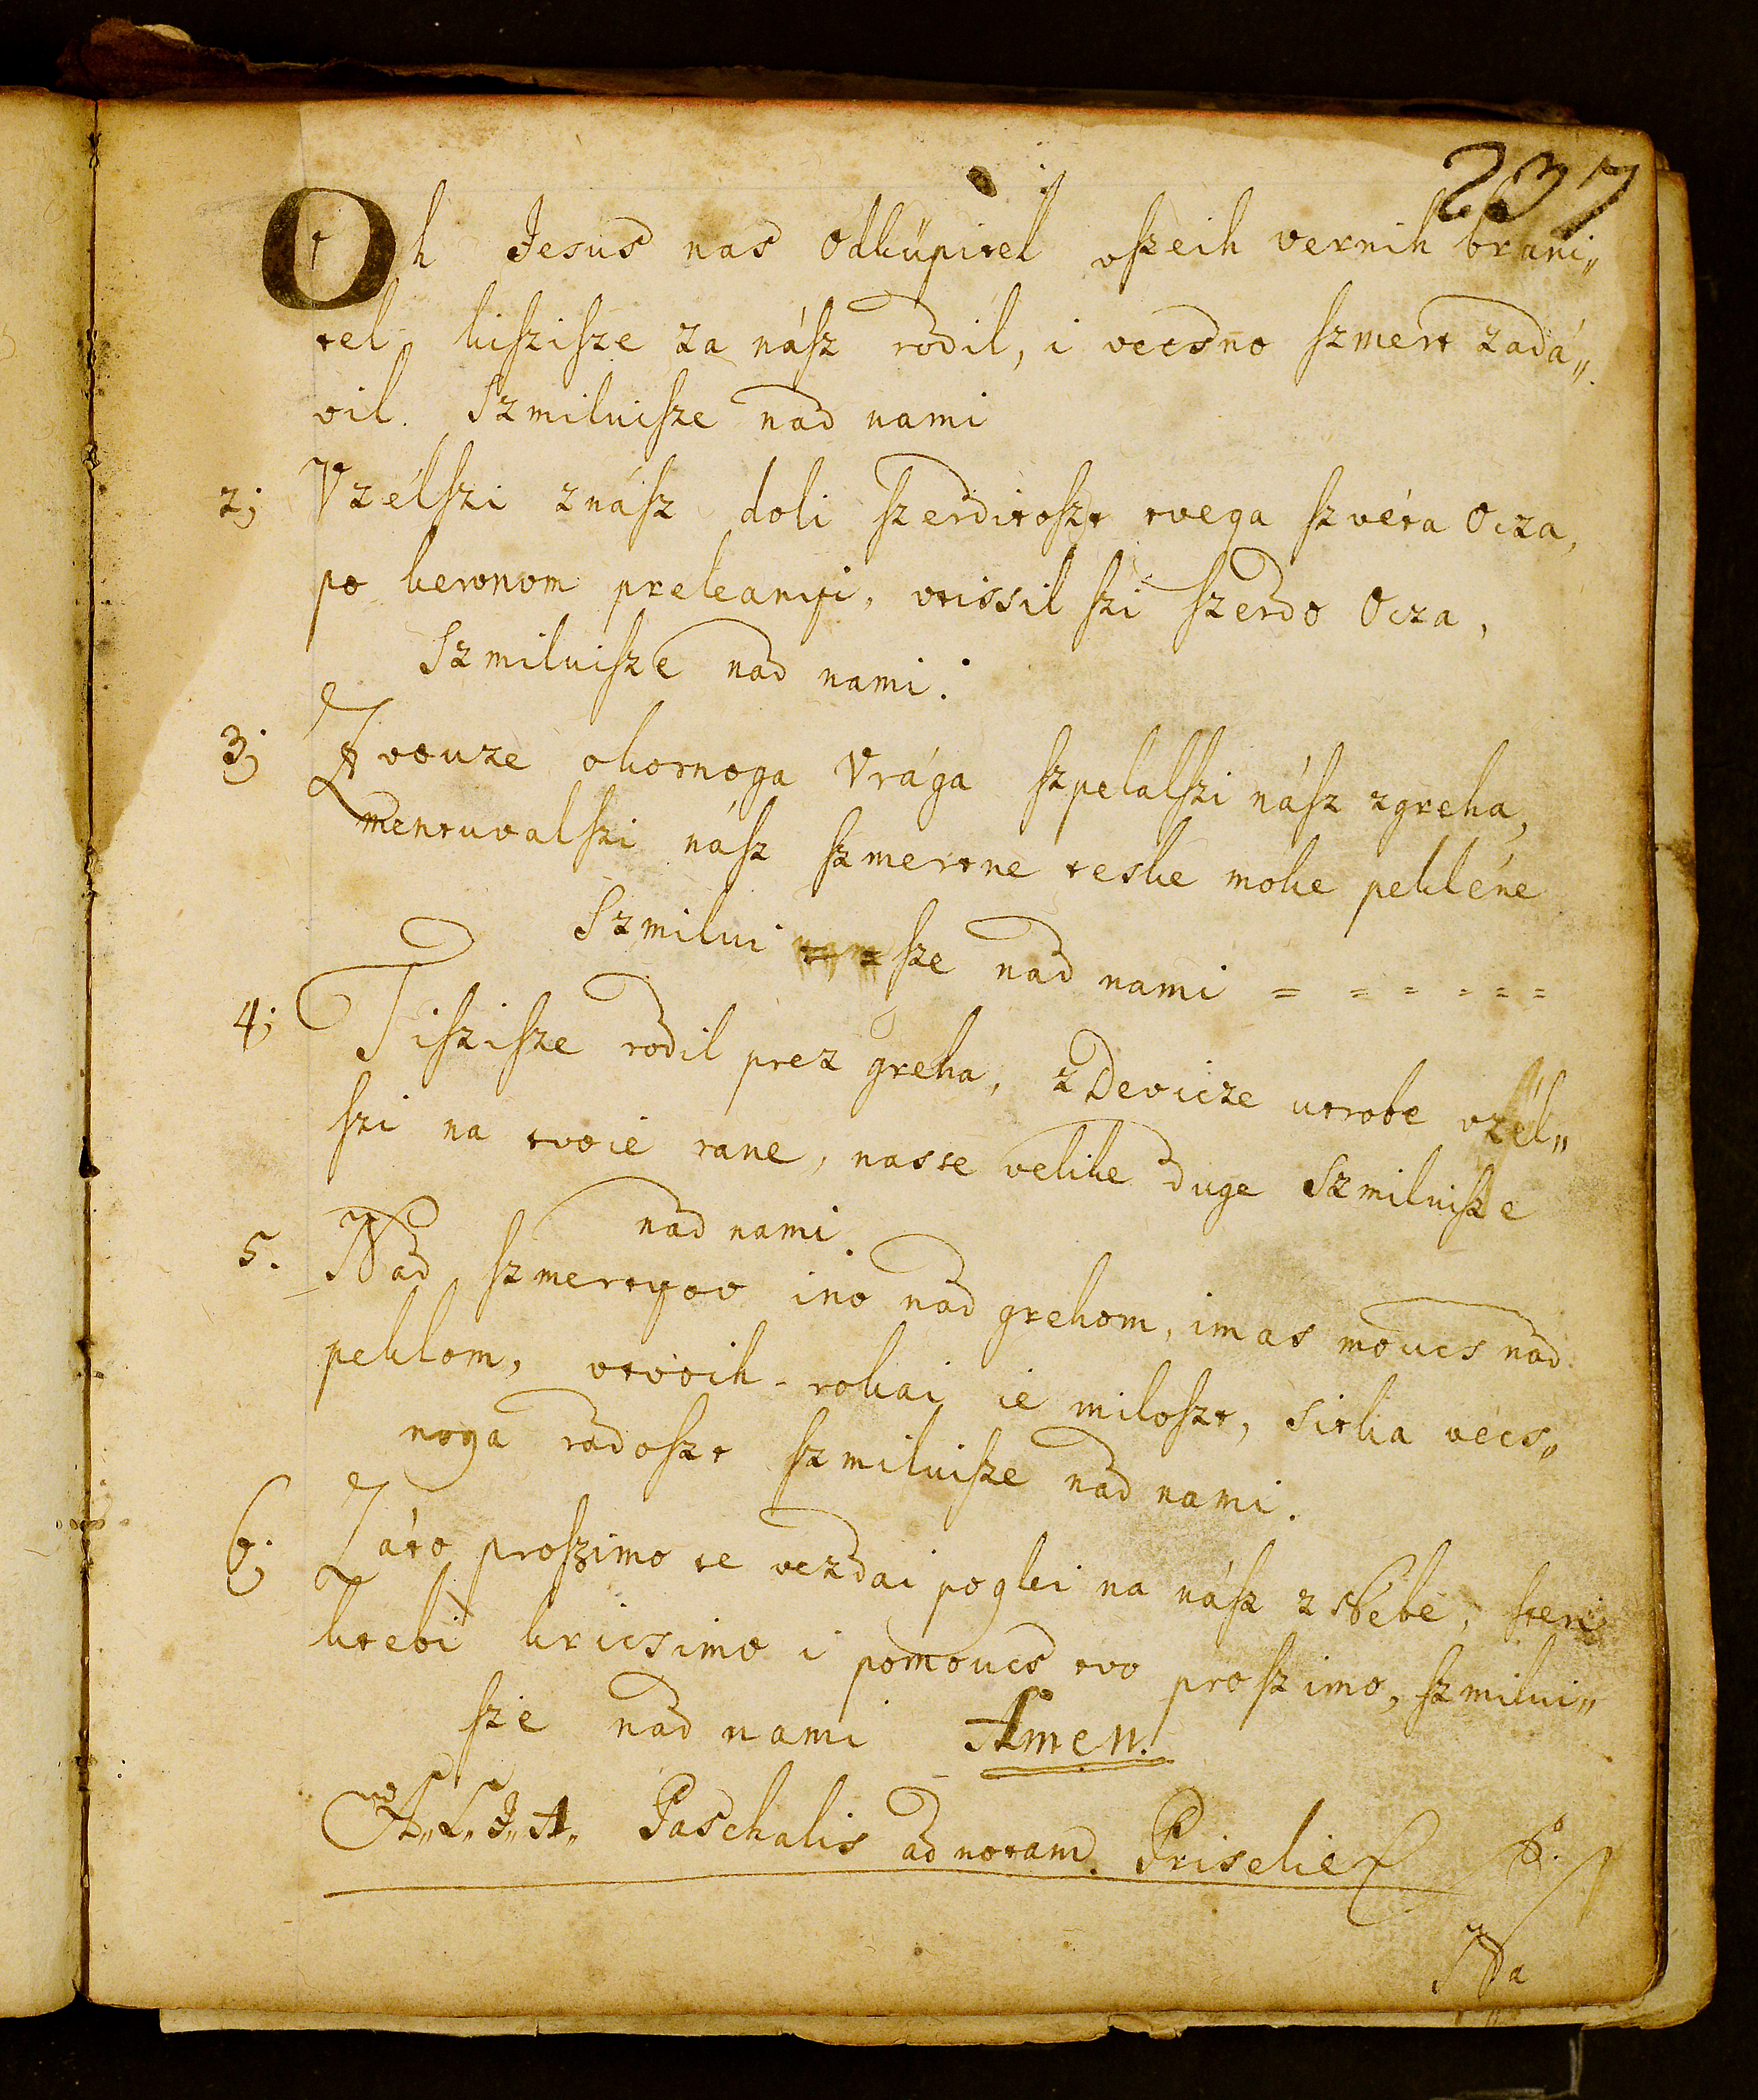 237
Oh Jesus nas Odkúpitel vſzeih vernih brani„
tel kiſziſze za náſz rodil, i vecsno ſzmert zadá„
vil. Szmiluiſze nad nami
2; Vzélſzi znáſz doli ſzerditoſzt tvega ſzvéta Ocza,
po kervnom preleanÿi, vtissil ſzi ſzerdo Ocza,
Szmiluiſze nad nami.
3; Zvouze okornoga Vrága ſzpelalſzi náſz zgreha,
mentuvalſzi náſz ſzmertne teske moke pekléne
Szmilui ſze nad nami = = = = = =
4; Tiſziſze rodil prez greha, z Devicze utrobe vzél„
ſzi na tvoié rane, nasse velike duge Szmiluiſze
nad nami.
5. Nad ſzmertyov ino nad grehom, imas moucs nad
peklom, vtvoih rokai ie miloſzt, sitka vécs„
noga radoſzt ſzmiluiſze nad nami.
6; Záto proſzimo te vezdai poglei na náſz z Nébe, ſteri
ktebi kricsimo i pomoucs tvo proſzimo, ſzmilui„
ſze nad nami Amen.
A„ L„ J„ A„ Paschalis ad notam. Priselie
Na